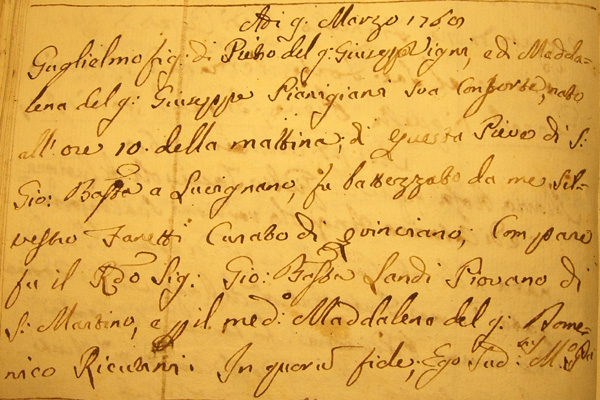 Adi 9: Marzo 1760
Guglielmo fig: di Pietro del q: Giusepp Vigni, e di Madda=
lena del q: Giuseppe Pianigiani Sua Consorte, nato
all' ore 10. della mattina, di questa Pieve di S:
Gio: Batta a Lucignano, fu battezzato da me Sil=
vestro Fanetti Curato di Quinciano; Compare
fu il Rdo Sig: Gio: Batta Landi Piovano di
S: Martino, e il med:o Maddalena del q: Dome=
nico Ricciani: In quorum fide, Ego